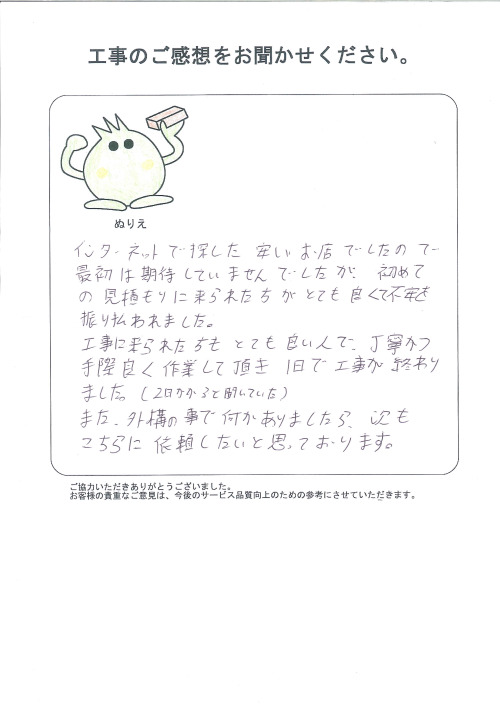 工事のご感想をお聞かせください。
ぬりえ
インターネットで探した 安いお店でしたので
最初は期待していませんでしたが、初めて
の見積もりに来られた方がとても良くて不安を
振り払われました。
工事に来られた方も とても良い人で、丁寧かつ
手際良く作業して頂き 1日で工事が終わり
ました。(2日かかると聞いていた)
また、外構の事で何かありましたら、次も
こちらに依頼したいと思っております。
ご協力いただきありがとうございました。
お客様の貴重なご意見は、今後のサービス品質向上のための参考にさせていただきます。